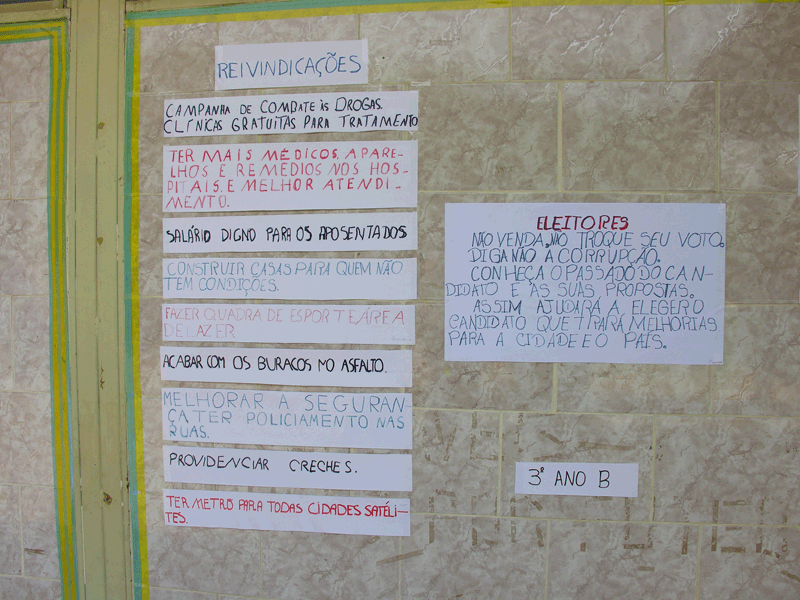 REIVINDICAÇÕES
CAMPANHA DE COMBATE ÀS DROGAS.
CLÍNICAS GRATUITAS PARA TRATAMENTO
TER MAIS MÉDICOS, APARE-
LHOS E REMÉDIOS NOS HOS-
PITAIS. E MELHOR ATENDI-
MENTO.
SALÁRIO DIGNO PARA OS APOSENTADOS
CONSTRUIR CASAS PARA QUEM NÃO
TEM CONDIÇÕES.
FAZER QUADRA DE ESPORTE ÁREA
DE LAZER
ACABAR COM OS BURACOS NO ASFALTO.
MELHORAR A SEGURAN-
ÇA TER POLICIAMENTO NAS
RUAS.
PROVIDENCIAR CRECHES.
TER METRÔ PARA TODAS CIDADES SATÉLI-
TES.
ELEITORES
NÃO VENDA, NÃO TROQUE SEU VOTO.
DIGA NÃO A CORRUPÇÃO.
CONHEÇA O PASSADO DO CAN-
DIDATO E AS SUAS PROPOSTAS.
ASSIM AJUDARÁ A ELEGER O
CANDIDATO QUE TRARÁ MELHORIAS
PARA A CIDADE E O PAÍS.
3º ANO B